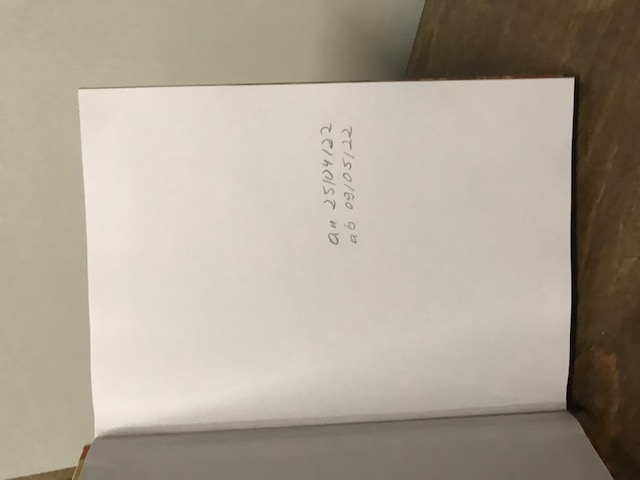 an 25/04/22
ab 09/05/22